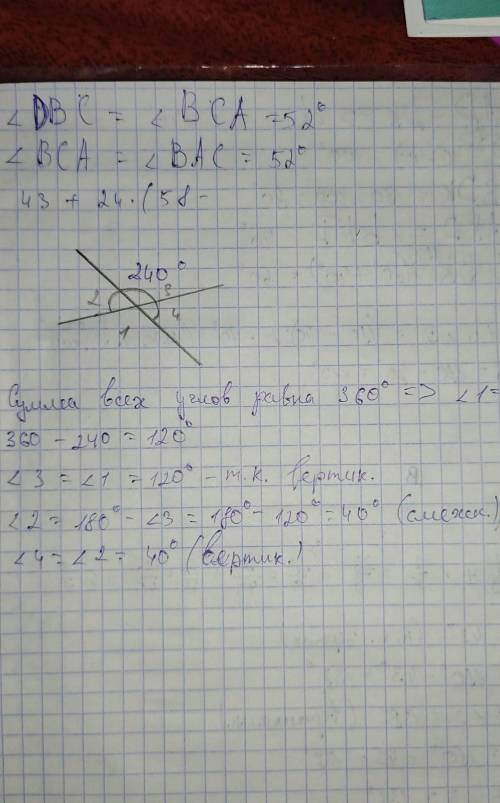 ∠DBC = ∠BCA = 52°
∠BCA = ∠BAC = 52°
43 + 24 · (58 -
240°
2 3
4
1
Сумма всех углов равна 360° => ∠1=
360 - 240 = 120°
∠3 = ∠1 = 120° - т.к. вертик.
∠2 = 180° - ∠3 = 180° - 120° = 40° (смежн.)
∠4 = ∠2 = 40° (вертик.)